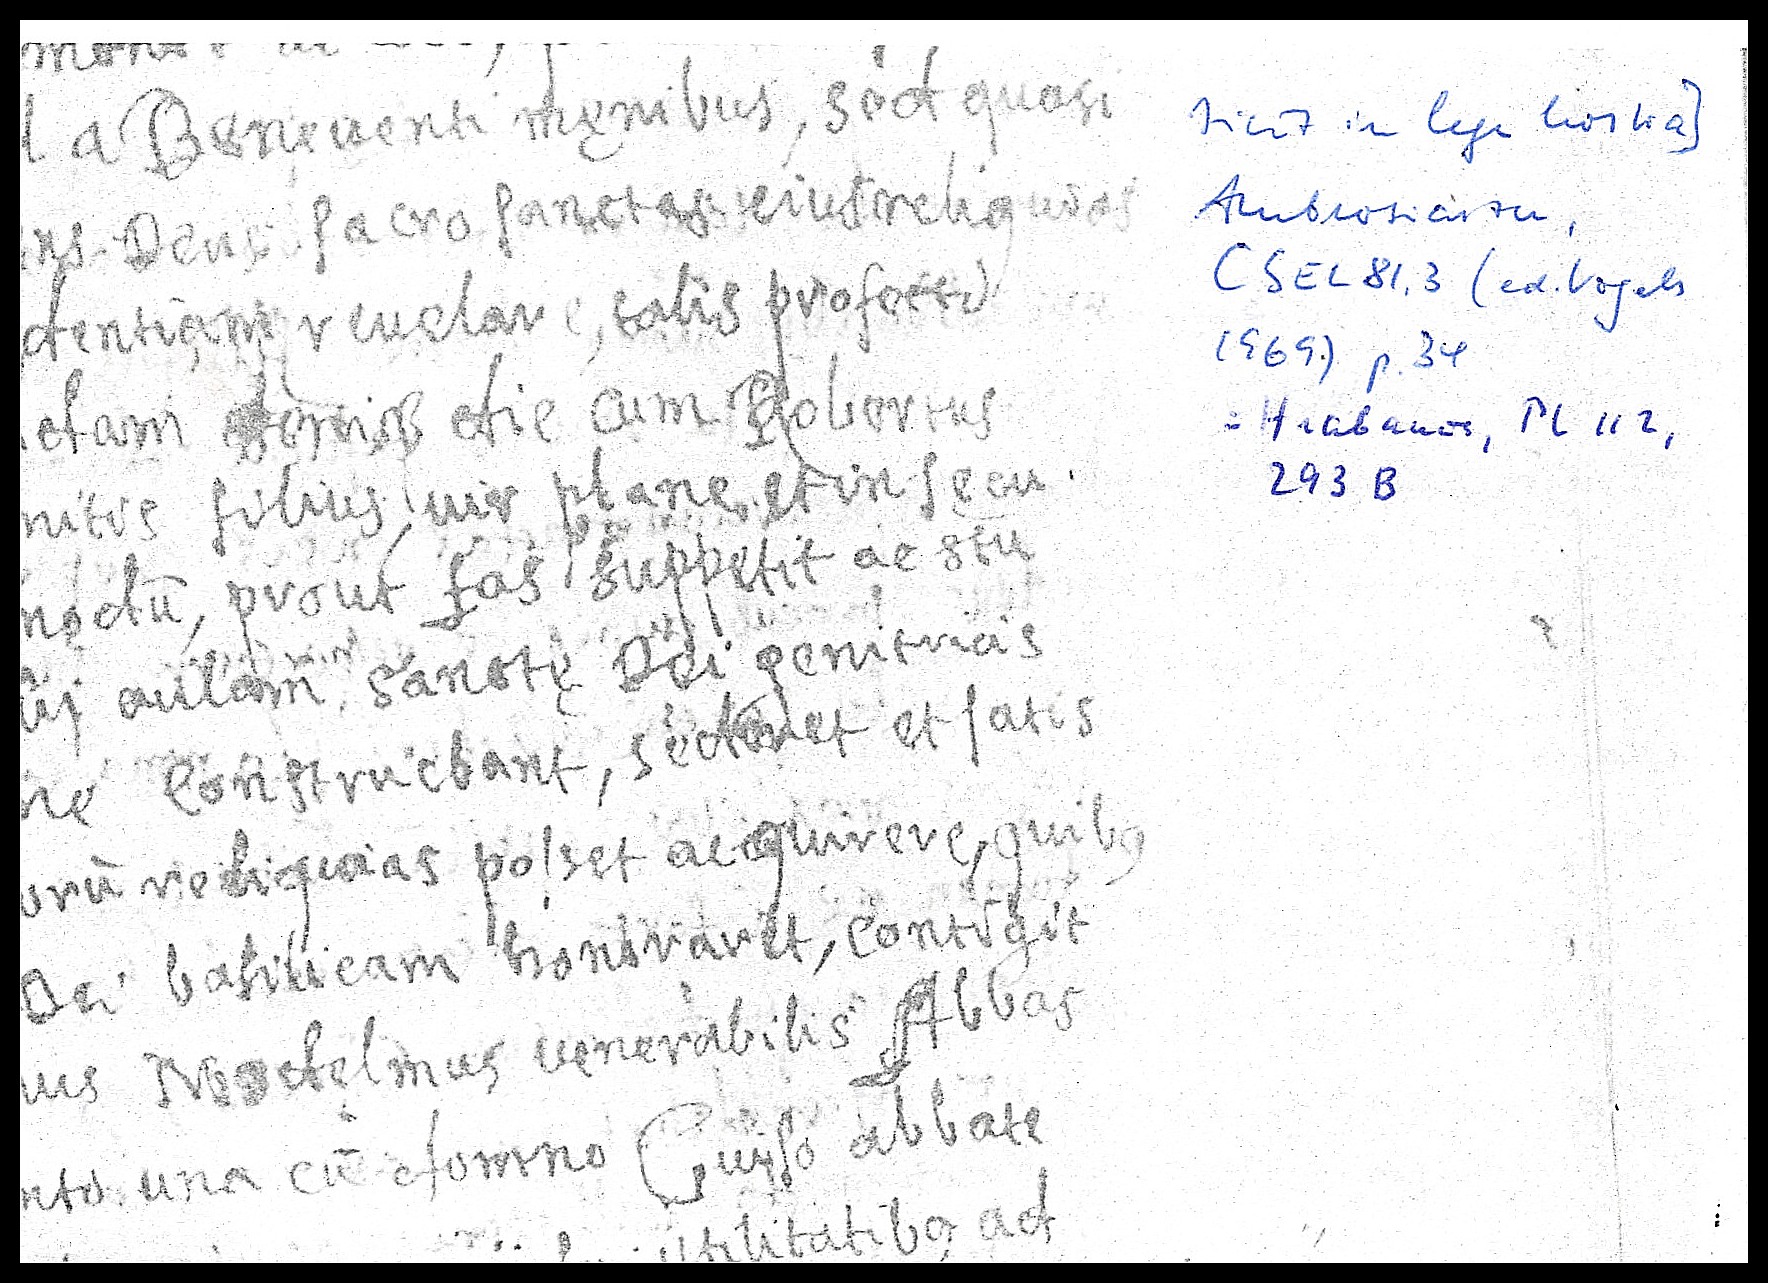 a Beneuenti męnibus, sed quasi
Deus sacrosanctas eius reliquias
dentiam reuelare, talis profecto
etiam die cum Robertus
filius, uir plane, et in secu
modū, prout fas suppetit aestu
aulam sanctę Dei genitricis
construebant, et satis
orū reliquias posset acquirere, quibꝯ
Dei basilicam honoraret, contigit
uenerabilis Abbas
nto una cū domno Guiso abbate
utilitatibꝯ ad
sicut in lege hostia]
Ambrosiaster,
CSEL 81.3 (ed. Vogels
1969) p. 34
= Hrabanus, PL 112,
293 B